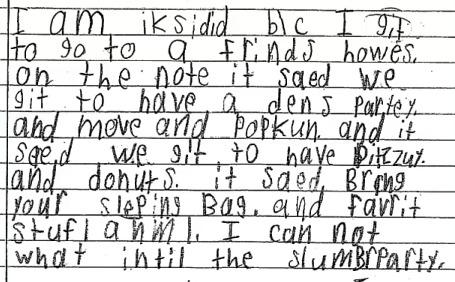 I am iksidid b/c I git
to go to a frinds howes.
on the note it saed we
git to have a dens partey.
and move and PoPkun. and it
saed we git to have Pitzzuy.
and donuts. it saed Bring
your sleping Bag. and favrit
stufl anml. I can not
what intil the slumBrParty.